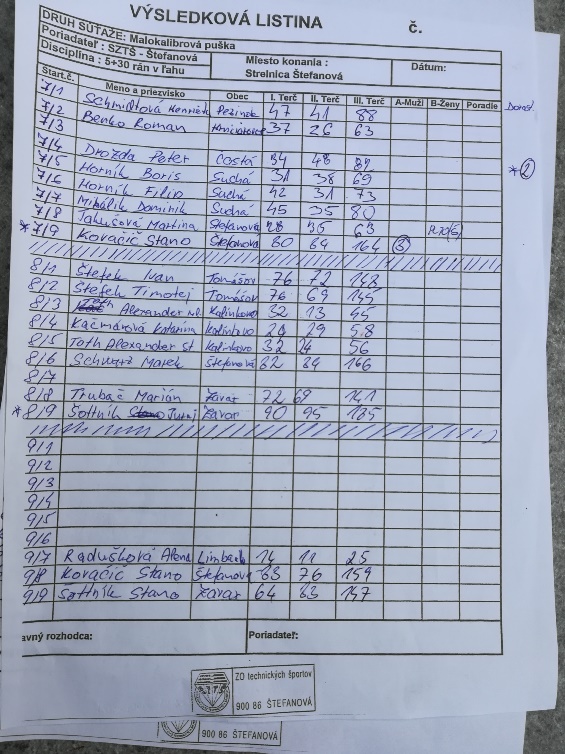 VÝSLEDKOVÁ LISTINA č.
DRUH SÚŤAŽE: Malokalibrová puška
Poriadateľ : SZTŠ - Štefanová
Disciplína : 5+30 rán v ľahu
Miesto konania :
Strelnica Štefanová
Dátum:
Start.č. Meno a priezvisko Obec I. Terč II. Terč III. Terč A-Muži B-Ženy Poradie
7/1 Schmidtová Henrieta Pezinok 47 41 88 Dorast
7/2 Benko Roman 37 26 63
7/3
7/4 Drozda Peter Častá 34 48 * 2
7/5 Horník Boris Suchá 31 38 69
7/6 Horník Filip Suchá 42 31 73
7/7 Mihálik Dominik Suchá 45 35 80
7/8 Jakušová Martina Štefanová 28 35 63
* 7/9 Kovačič Stano Štefanova 80 84 164 3
8/1 Štefek Ivan Tomášov 76 72 148
8/2 Štefek Timotej Tomášov 76 69 145
8/3 Alexander ml. Kalinkovo 32 13 45
8/4 Kačmárová Katarína Kalinkovo 29 29 58
8/5 Toth Alexander st Kalinkovo 32 24 56
8/6 Schwarz Marek Štefanová 82 84 166
8/7
8/8 Trubač Marián Zavar 72 69 141
* 8/9 Šottník Juraj Zavar 90 95 185
9/1
9/2
9/3
9/4
9/5
9/6
9/7 Radušková Alena Limbach 14 11 25
9/8 Kovačič Stano Štefanova 83 76 159
9/9 Šottník Stano Zavar 64 83 147
avný rozhodca: Poriadateľ:
ZO technických športov
900 86 ŠTEFANOVÁ
900 86 ŠTEFANOVÁ